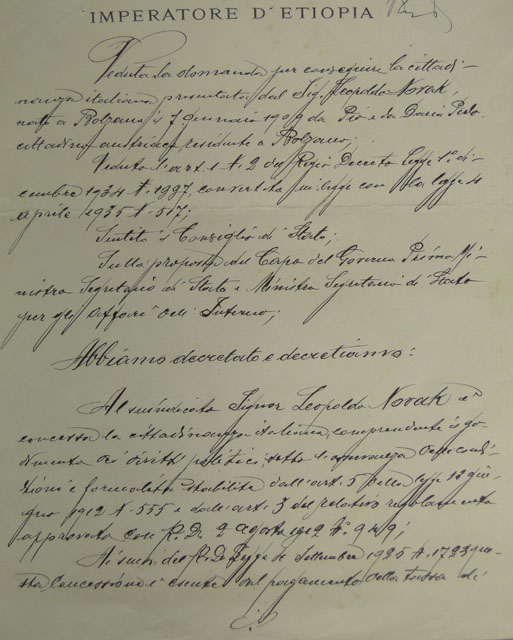 IMPERATORE D'ETIOPIA
Veduta la domanda per conseguire la cittadi-
nanza italiana presentata dal Sig. Leopoldo Novak,
nato a Bolzano il 7 gennaio 1907 da Pio e da Daria
cittadino austriaco, residente a Bolzano;
Veduto l'art. 1 N. 2 del Regio Decreto legge 1° di-
cembre 1934 N. 1997, convertito in legge con la legge 4
aprile 1935 N. 517;
Sentito il Consiglio di Stato;
Sulla proposta del Capo del Governo Primo Mi-
nistro Segretario di Stato e Ministro Segretario di Stato
per gli Affari dell'Interno;
Abbiamo decretato e decretiamo:
Al suindicato Signor Leopoldo Novak è
concessa la cittadinanza italiana, comprendente il go-
dimento dei diritti politici, sotto l'osservanza delle condi-
zioni e formalità stabilite dall'art. 5 della legge 13 giu-
gno 1912 N. 555 e dall'art. 3 del relativo regolamento
approvato con R. D. 2 agosto 1912 N. 949;
Ai sensi del R. D. legge settembre 1925 N. 1723 que-
sta concessione è esente dal pagamento della tassa di